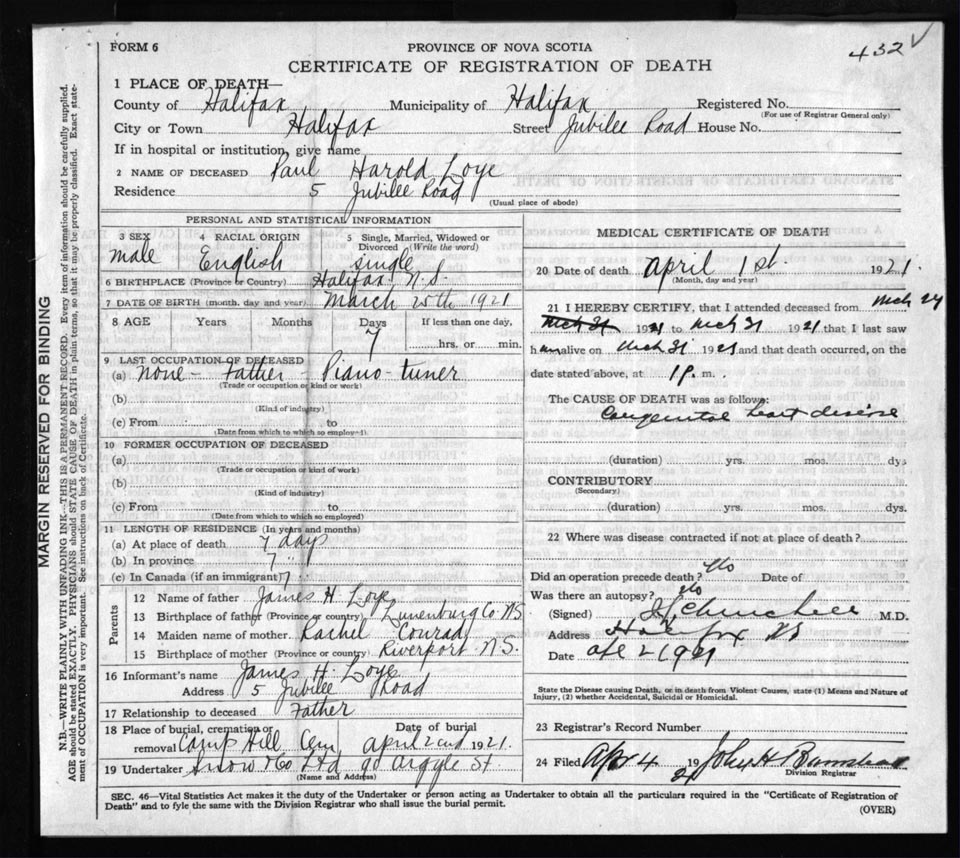 FORM 6
PROVINCE OF NOVA SCOTIA
432
CERTIFICATE OF REGISTRATION OF DEATH
1 PLACE OF DEATH—
County of Halifax Municipality of Halifax Registered No.
(For use of Registrar General only)
City or Town Halifax Street Jubilee Road House No.
If in hospital or institution, give name
2 NAME OF DECEASED Paul Harold Loye
Residence 5 Jubilee Road
(Usual place of abode)
PERSONAL AND STATISTICAL INFORMATION
3 SEX 4 RACIAL ORIGIN 5 Single, Married, Widowed or Divorced (Write the word)
male English single
6 BIRTHPLACE (Province or Country) Halifax N.S.
7 DATE OF BIRTH (month, day and year) March 25th 1921
8 AGE Years Months Days If less than one day,
7 hrs. or min.
9 LAST OCCUPATION OF DECEASED
(a) none - Father - Piano-tuner
(Trade or occupation or kind of work)
(b)
(Kind of industry)
(c) From to
(Date from which to which so employed)
10 FORMER OCCUPATION OF DECEASED
(a)
(Trade or occupation or kind of work)
(b)
(Kind of industry)
(c) From to
(Date from which to which so employed)
11 LENGTH OF RESIDENCE (In years and months)
(a) At place of death 7 days
(b) In province 7 "
(c) In Canada (if an immigrant) 7
Parents
12 Name of father James H. Loye
13 Birthplace of father (Province or country) Lunenburg Co N.S
14 Maiden name of mother Rachel Conrad
15 Birthplace of mother (Province or country) Riverport N.S.
16 Informant's name James H. Loye
Address 5 Jubilee Road
17 Relationship to deceased Father
18 Place of burial, cremation or removal Date of burial
Camp Hill Cem April 2nd 1921.
19 Undertaker Snow & Co Ltd 90 Argyle St
(Name and Address)
MEDICAL CERTIFICATE OF DEATH
20 Date of death April 1st 1921.
(Month, day and year)
21 I HEREBY CERTIFY, that I attended deceased from Mch 24
Mch 31 1921 to Mch 31 1921 that I last saw
him alive on Mch 31 1921 and that death occurred, on the
date stated above, at 1 P. m.
The CAUSE OF DEATH was as follows:
Congenital heart disease
(duration) yrs. mos. dys
CONTRIBUTORY
(Secondary)
(duration) yrs. mos. dys.
22 Where was disease contracted if not at place of death?
Did an operation precede death? No Date of
Was there an autopsy? No
(Signed) Churchill M.D.
Address Halifax NS
Date Apl 2 1921
State the Disease causing Death, or in death from Violent Causes, state (1) Means and Nature of
Injury, (2) whether Accidental, Suicidal or Homicidal.
23 Registrar's Record Number
24 Filed Apr 4 1921 John H Barnstead
Division Registrar
SEC. 46—Vital Statistics Act makes it the duty of the Undertaker or person acting as Undertaker to obtain all the particulars required in the "Certificate of Registration of
Death" and to fyle the same with the Division Registrar who shall issue the burial permit.
(OVER)
MARGIN RESERVED FOR BINDING
N.B.—WRITE PLAINLY WITH UNFADING INK—THIS IS A PERMANENT RECORD. Every item of information should be carefully supplied.
AGE should be stated EXACTLY. PHYSICIANS should STATE CAUSE OF DEATH in plain terms, so that it may be properly classified. Exact state-
ment of OCCUPATION is very important. See instructions on back of Certificate.